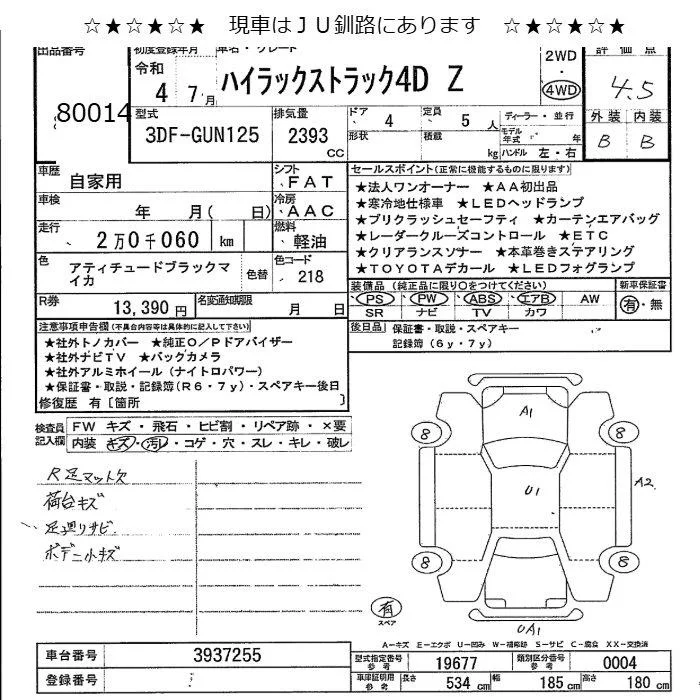 ☆★☆★☆★ 現車はＪＵ釧路にあります ☆★☆★☆★
出品番号 80014
初度登録年月 令和 4 7月
車名・グレード ハイラックストラック4D Z
2WD・4WD
評価点 4.5
外装 内装
B B
型式 3DF-GUN125
排気量 2393 CC
ドア 4
定員 5人
形状 積載 kg
ディーラー・並行
モデル年式 年
ハンドル 左・右
車歴 自家用
シフト FAT
車検 年 月( 日)
冷房 AAC
走行 2万0千060 km
燃料 軽油
色 アティチュードブラックマイカ
色替
色コード 218
R券 13,390円
名変通知期限 月 日
セールスポイント(正常に機能するものに限ります)
★法人ワンオーナー ★AA初出品
★寒冷地仕様車 ★LEDヘッドランプ
★プリクラッシュセーフティ ★カーテンエアバッグ
★レーダークルーズコントロール ★ETC
★クリアランスソナー ★本革巻きステアリング
★TOYOTAデカール ★LEDフォグランプ
装備品 (純正品に限り○をつけてください)
PS PW ABS エアB AW
SR ナビ TV カワ
新車保証書
有・無
後日品 保証書・取説・スペアキー
記録簿(6y・7y)
注意事項申告欄(不具合内容等は具体的に記入して下さい)
★社外トノカバー ★純正O/Pドアバイザー
★社外ナビTV ★バックカメラ
★社外アルミホイール(ナイトロパワー)
★保証書・取説・記録簿(R6・7y)・スペアキー後日
修復歴 有〔箇所 〕
検査員記入欄
FW キズ・飛石・ヒビ割・リペア跡・×要
内装 キズ・汚レ・コゲ・穴・スレ・キレ・破レ
R足マット欠
荷台キズ
足廻りサビ
ボデー小キズ
A1
8 8
U1
A2
8 8
UA1
有
スペア
A−キズ E−エクボ U−凹み W−補修跡 S−サビ C−腐食 XX−交換済
車台番号 3937255
登録番号
型式指定番号 参考 19677
類別区分番号 参考 0004
車庫証明用 参考 長さ 534 cm 幅 185 cm 高さ 180 cm